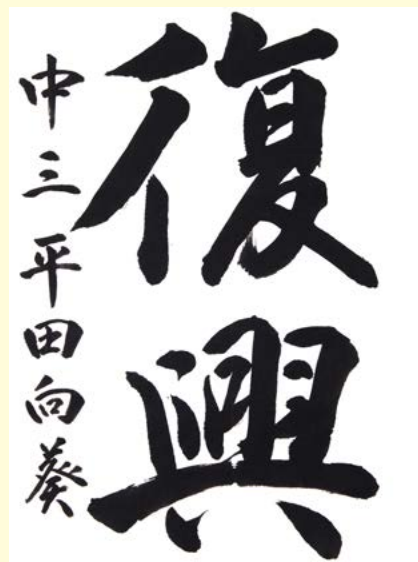 復興
中三平田向葵